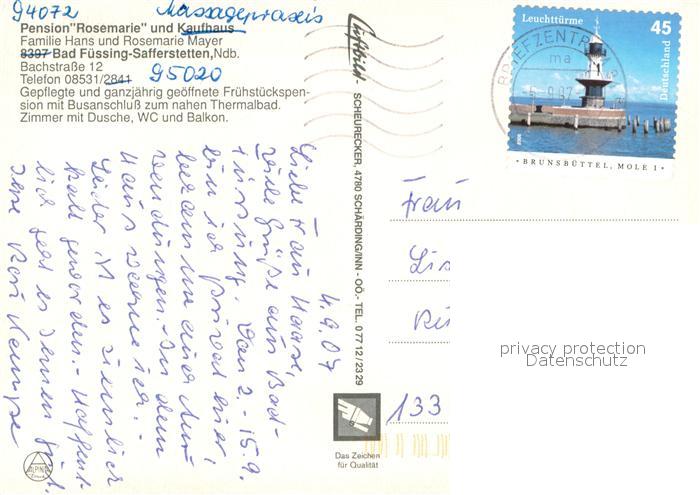 94072 Massagepraxis
Pension"Rosemarie" und Kaufhaus
Familie Hans und Rosemarie Mayer
8397 Bad Füssing-Safferstetten,Ndb.
Bachstraße 12
Telefon 08531/2841 95020
Gepflegte und ganzjährig geöffnete Frühstückspen-
sion mit Busanschluß zum nahen Thermalbad.
Zimmer mit Dusche, WC und Balkon.
4.9.07
Liebe Frau Haase,
viele Grüße aus Bad-
Füssing. Vom 2. - 15.9.
bin ich privat hier,
bekomme auch An-
wendungen. In dem
Haus wohne ich.
Leider ist es ziemlich
kalt geworden. - Hoffent-
lich geht es Ihnen gut.
Ihre
ALPINA
Luftbild - SCHEURECKER, 4780 SCHÄRDING/INN - OÖ. - TEL. 0 77 12 / 23 29
Das Zeichen
für Qualität
Leuchttürme 45
Deutschland
BRUNSBÜTTEL, MOLE 1
BRIEFZENTRUM
ma
Frau
133
privacy protection
Datenschutz